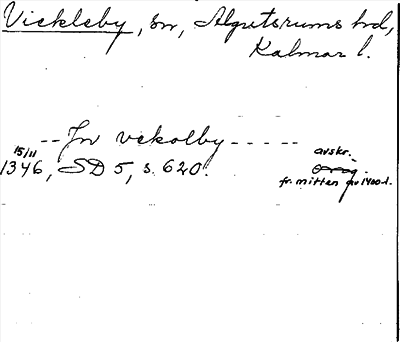 Vickleby, sn, Algutsrums hd,
Kalmar l.
-- Jn vckolby -----
15/11 avskr.
1346, SD 5, s. 620.
fr. mitten av 1400-t.